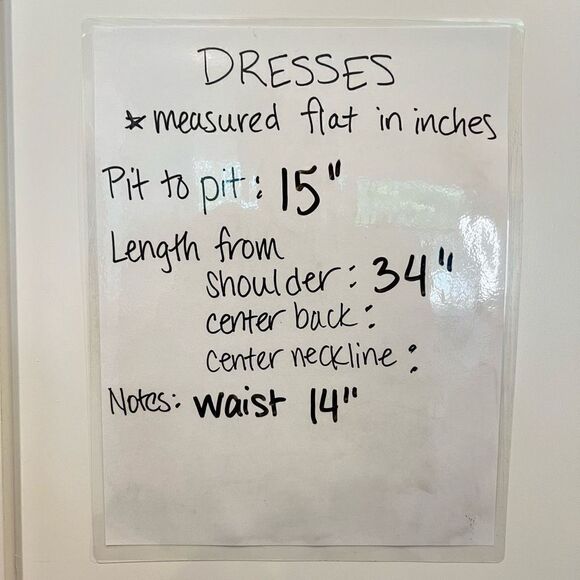 DRESSES
* measured flat in inches
Pit to pit: 15"
Length from
shoulder: 34"
center back:
center neckline:
Notes: waist 14"